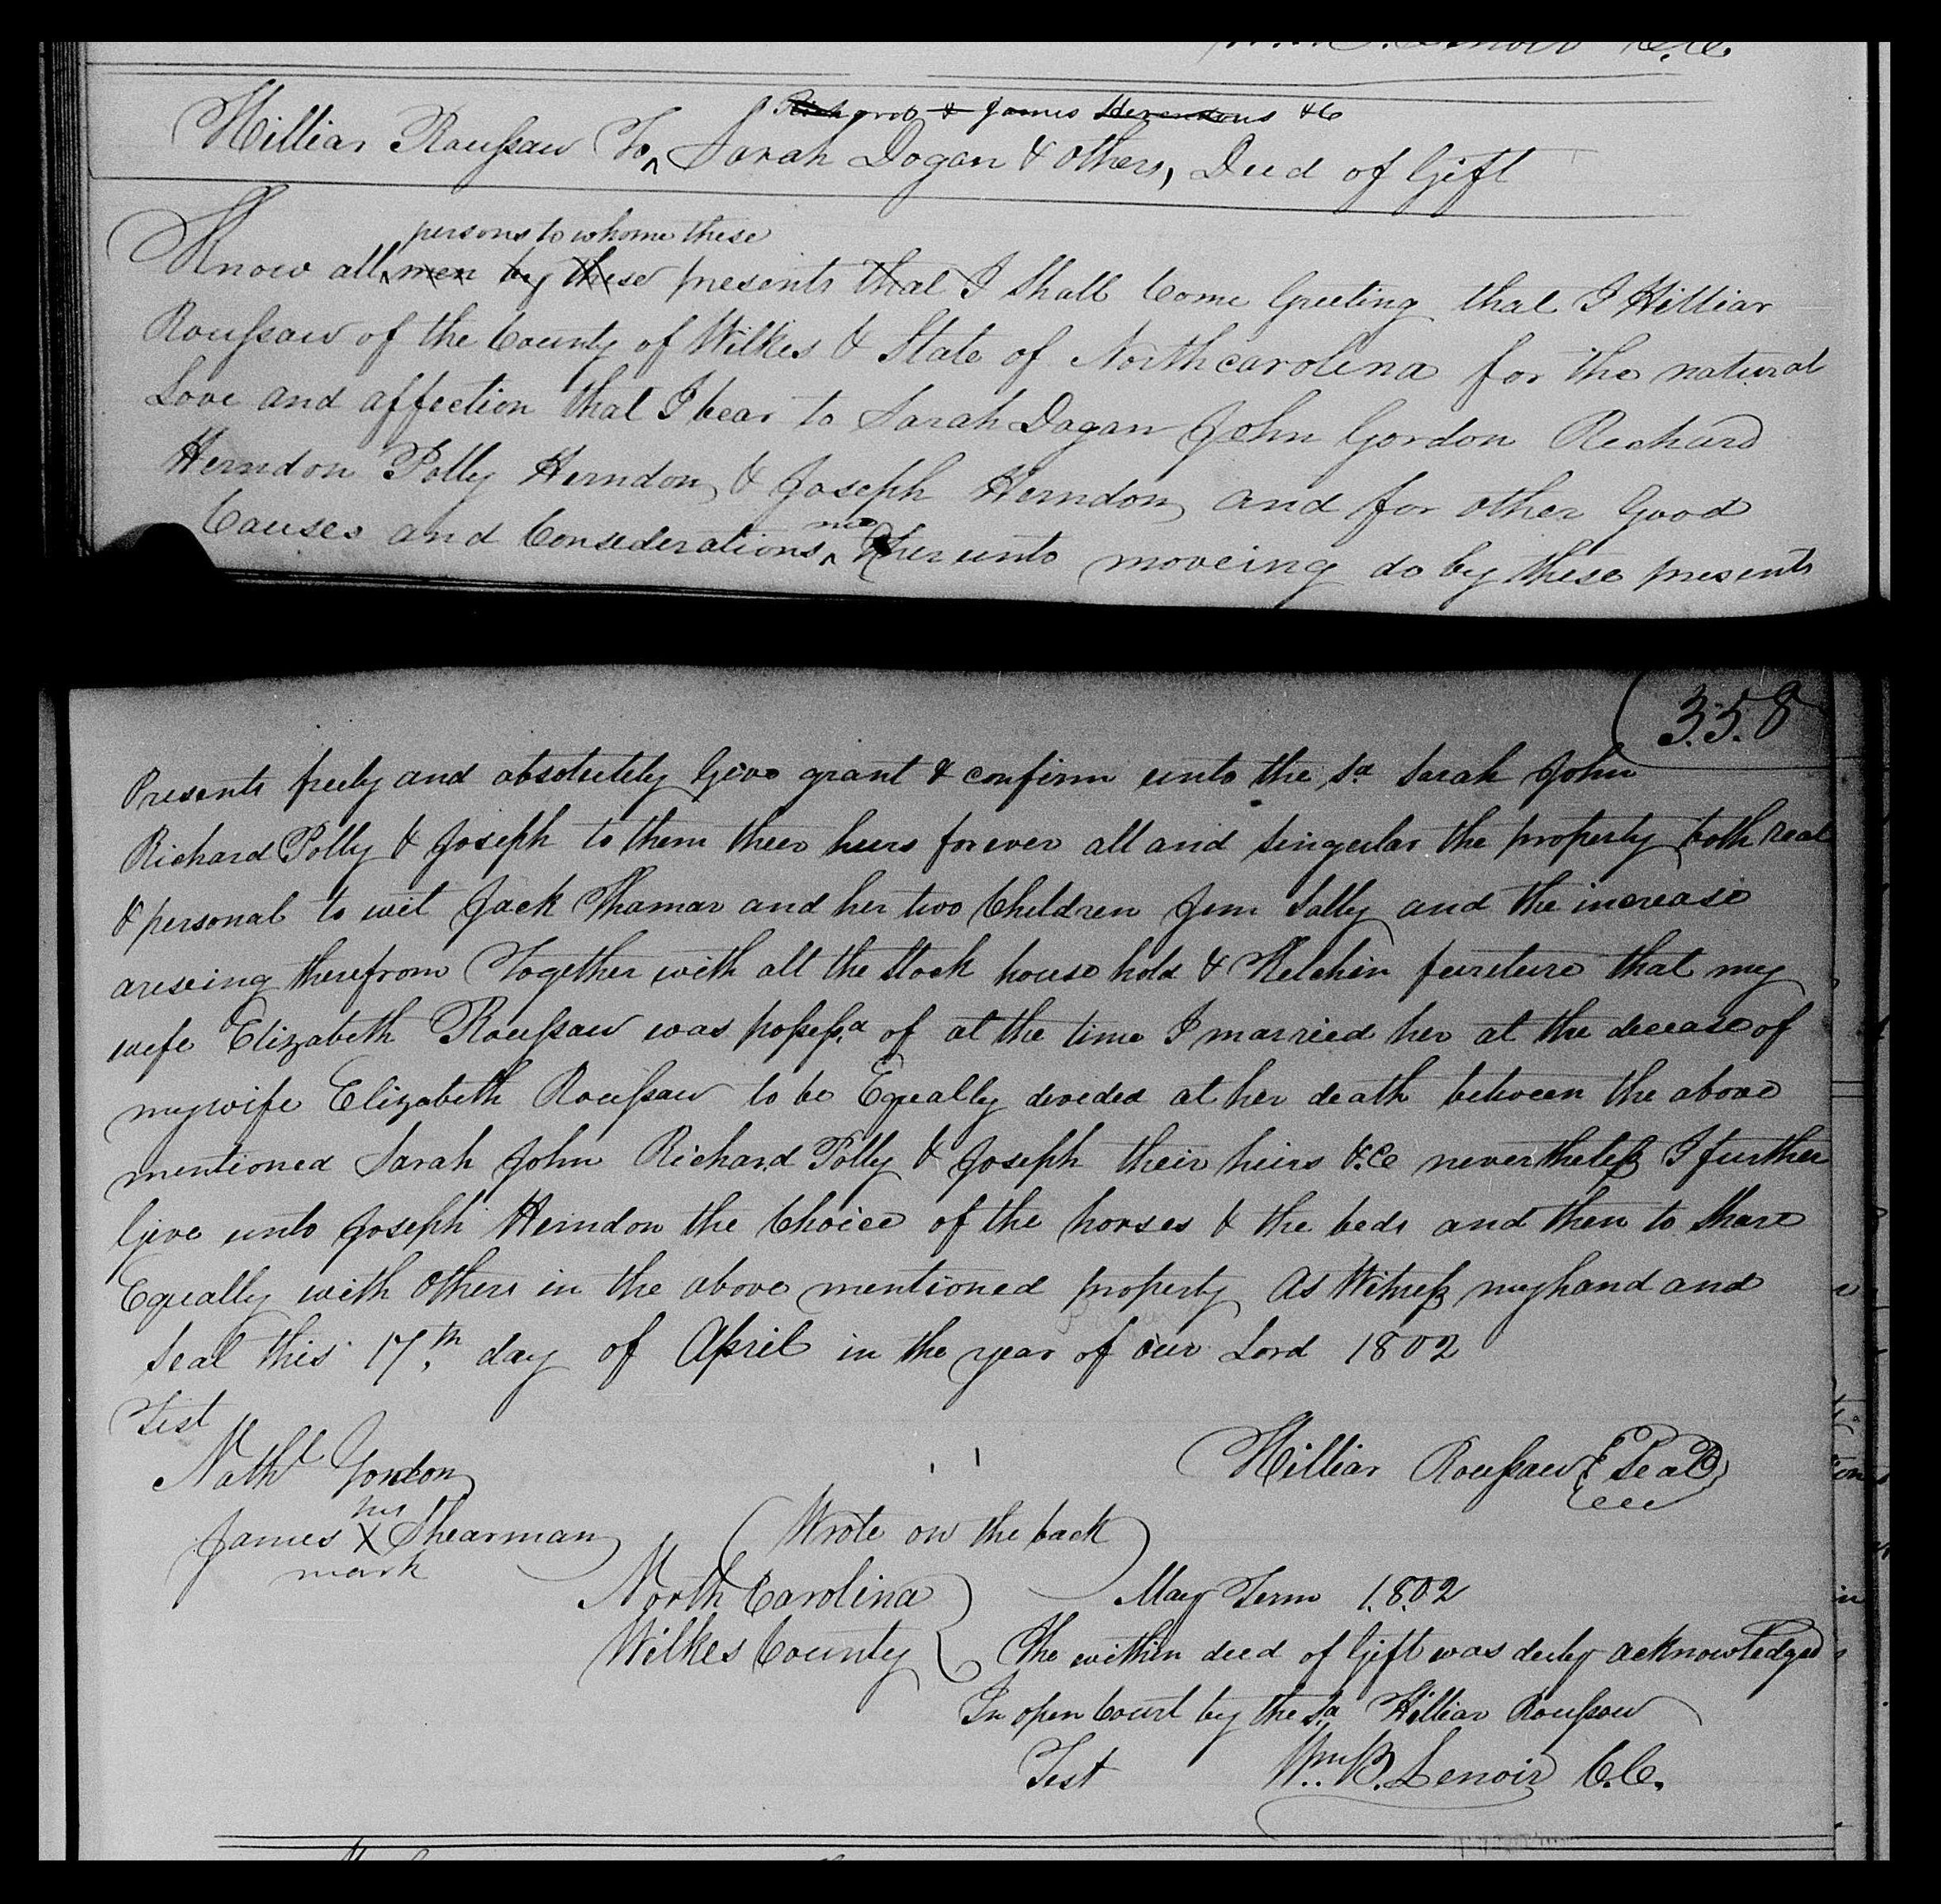 Richard & James Herendons &C
Hilliar Roussaw To ^ Sarah Dogan & others, Deed of Gift
persons to whome these
Know all ^ men by these presents that I Shall Come Greeting that I Hilliar
Roussaw of the County of Wilkes & State of Northcarolina for the natural
Love and affection that I bear to Sarah Dagan John Gordon Richard
Herndon Polly Herndon & Joseph Herndon and for other Good
me
Causes and Considerations ^ hereunto moveing do by these presents
358
Presents freely and absolutely Give grant & confirm unto the sd Sarah John
Richard Polly & Joseph to them their heirs forever all and singular the property both real
& personal to wit Jack Thamar and her two Children Jem Sally and the increase
areseing therefrom Together with all the Stock house hold & Kelchin furniture that my
wife Elizabeth Roussaw was possessd of at the time I married her at the decease of
my wife Elizabeth Roussaw to be Equally devided at her death between the above
mentioned Sarah John Richard Polly & Joseph their heirs &.C nevertheless I further
Give unto Joseph Herndon the Choice of the horses & the beds and then to Share
Equally with others in the above mentioned property As Witness my hand and
Seal this 17th day of April in the year of our Lord 1802
Test
Nathl Gordon
Hilliar Roussaw Seal
his
James X Shearman
mark
Wrote on the back
North Carolina
May Term 1802
Wilkes County
The within deed of Gift was duly acknowledged
In open Court by the Sd Hilliar Roussaw
Test Wm B. Lenoir C.C.